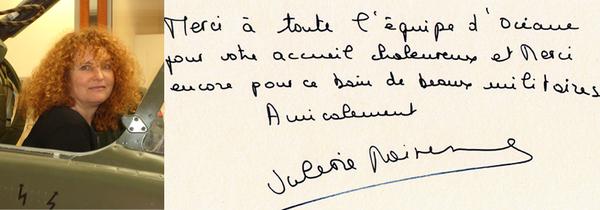 Merci à toute l'équipe d'Océane
pour votre accueil chaleureux et Merci
encore pour ce bain de beaux militaires
Amicalement
Valérie